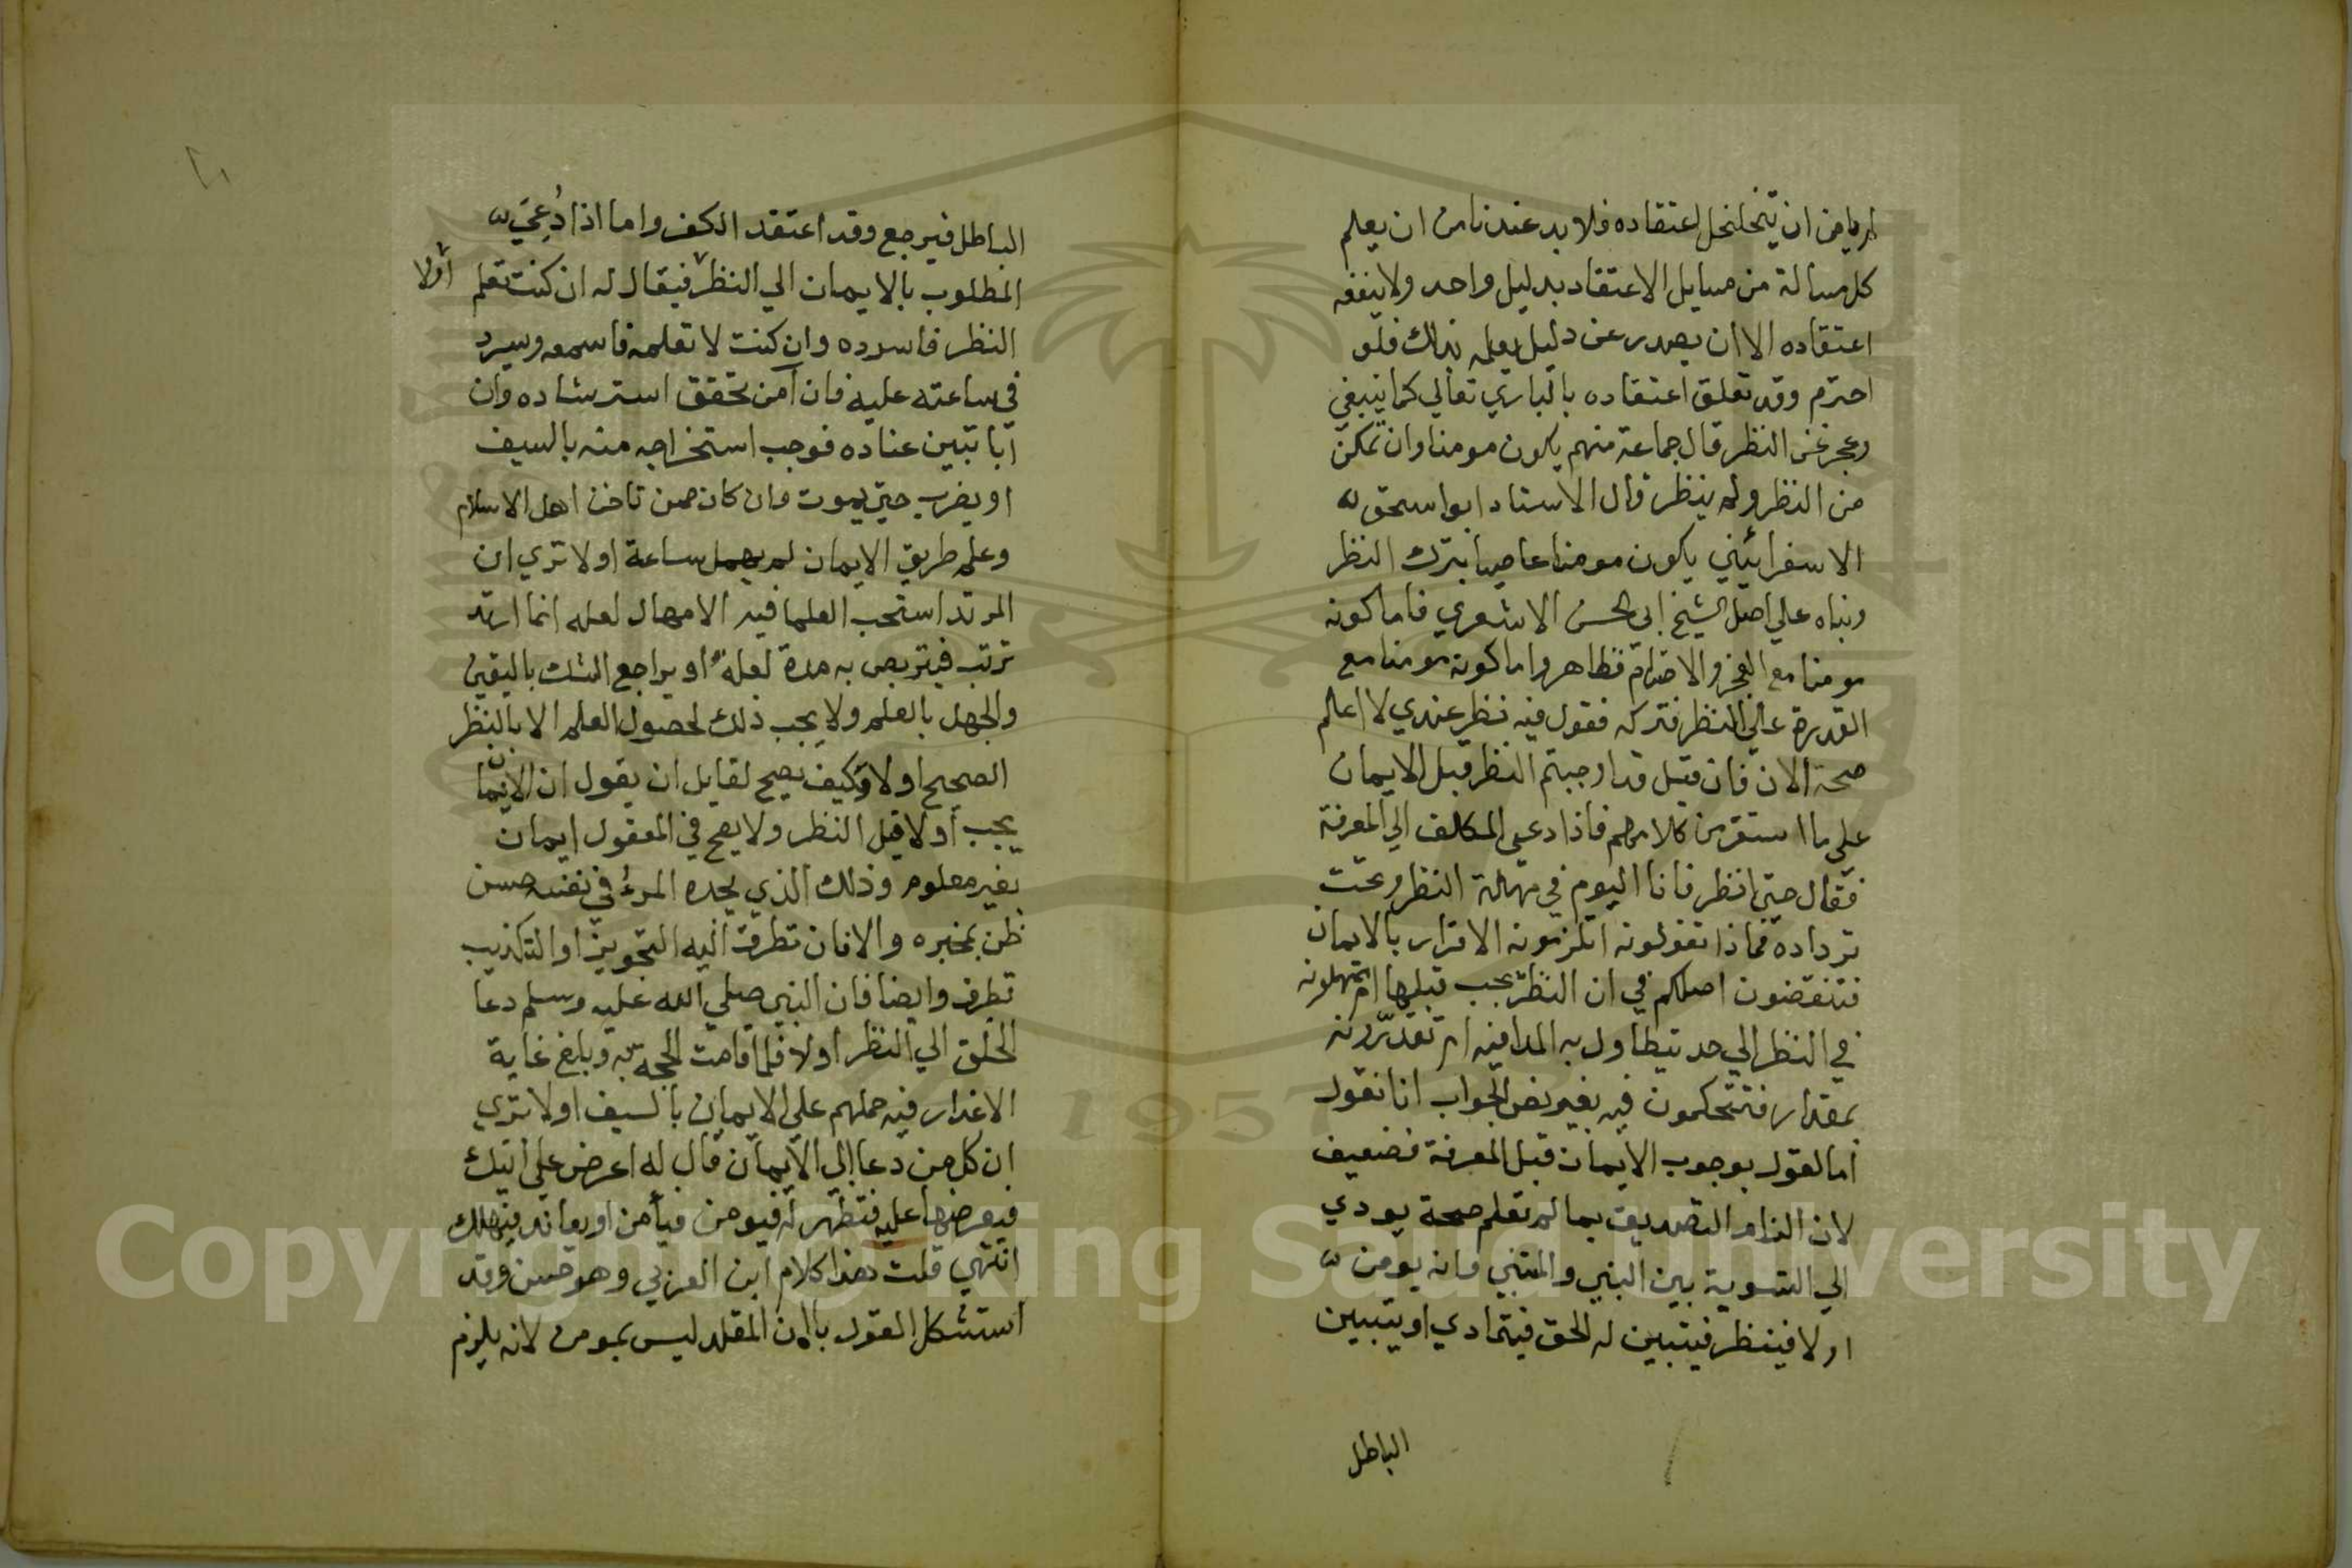 لم يامن ان يتخلخل اعتقاده فلا بد عندنا من ان يعلم
كل مسالة من مسايل الاعتقاد بدليل واحد ولا ينفعه
اعتقاده الا ان يصدر عن دليل يعلمه بذلك فلو
اخترم وقد تعلق اعتقاده بالباري تعالي كما ينبغي
وعجز عن النظر قال جماعة منهم يكون مومنا وان تمكن
من النظر ولم ينظر قال الاستاد ابو اسحق
الاسفرائيني يكون مومنا عاصيا بترك النظر
وبناه علي اصل الشيخ ابي الحسن الاشعري فاما كونه
مومنا مع العجز والاخترام فظاهر واما كونه مومنا مع
القدرة علي النظر فتركه فقول فيه نظر عندي لا اعلم
صحته الان فان قيل قد اوجبتم النظر قبل الايمان
علي ما استقر من كلامهم فاذا دعي المكلف الي المعرفة
فقال حتي انظر فانا اليوم في مهلة النظر وتحت
ترداده فماذا تقولونه اتلزمونه الاقرار بالايمان
فتنقضون اصلكم في ان النظر يجب قبلها ام تمهلونه
في النظر الي حد يتطاول به المدا فيه ام تقدّرونه
بمقدار فتتحكمون فيه بغير نص الجواب انا نقول
اما القول بوجوب الايمان قبل المعرفة فضعيف
لان الزام التصديق بما لم تعلم صحة يودي
الي التسوية بين النبي والمتنبي وانه يومن
اولا فينظر فيتبين له الحق فيتمادي او يتبين
الباطل
الباطل فيرجع وقد اعتقد الكفر واما اذا دُعِيَ
المطلوب بالايمان الي النظر فيقال له ان كنت تعلم
اولا
النظر فاسرده وان كنت لا تعلمه فاسمعه ويسرد
في ساعته عليه فان آمن تحقق استرشاده وان
ابا تبين عناده فوجب استخراجه منه بالسيف
او يضرب حتي يموت وان كان ممن ثافن اهل الاسلام
وعلم طريق الايمان لم يمهل ساعة اولا تري ان
المرتد استحب العلما فيه الامهال لعله انما ارتد
لريب فيتربص به مدة لعله او يراجع الشك باليقين
والجهل بالعلم ولا يجب ذلك لحصول العلم الا بالنظر
الصحيح اولا وكيف يصح لقايل ان يقول ان الايمان
يجب أولا قبل النظر ولا يصح في المعقول ايمان
بغير معلوم وذلك الذي يجده المرء في نفسه حسن
ظن بمخبره والا فان تطرق اليه التجويز او التكذيب
تطرف وايضا فان النبي صلي الله عليه وسلم دعا
الخلق الي النظر اولا فلما قامت الحجة به وبلغ غاية
الاعذار فيه حملهم علي الايمان بالسيف اولا تري
ان كل من دعا الي الايمان قال له اعرض علي ايتك
فيعرضها عليه فتظهر له فيومن فيأمن او يعاند فيهلك
انتهي قلت هذا كلام ابن العربي وهو حسن وقد
استشكل القول بان المقلد ليس بمومن لانه يلزم
Copyright © King Saud University
1957